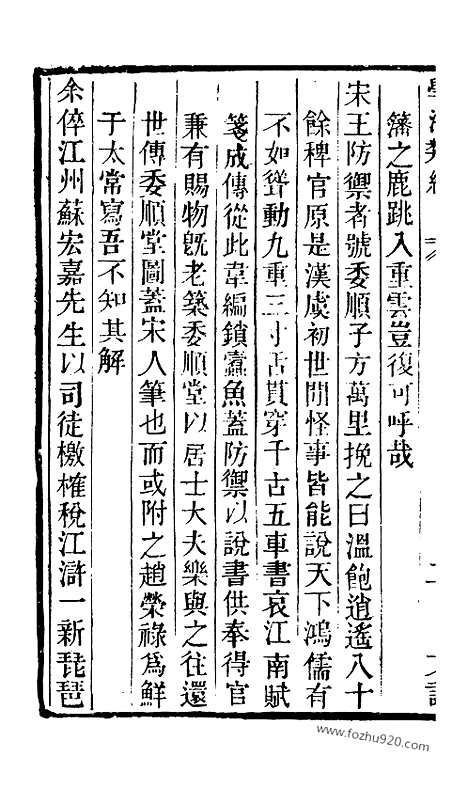 藩之鹿跳入重雲豈復可呼哉
宋王防禦者號委順子方萬里挽之曰溫飽逍遙八十
餘稗官原是漢虞初世間怪事皆能說天下鴻儒有
不如聳動九重三寸舌貫穿千古五車書哀江南賦
箋成傳從此韋編鎖蠹魚蓋防禦以說書供奉得官
兼有賜物旣老築委順堂以居士大夫樂與之往還
世傳委順堂圖蓋宋人筆也而或附之趙榮祿爲鮮
于太常寫吾不知其解
余倅江州蘇宏嘉先生以司徒檄榷稅江滸一新琵琶
www.fozhu920.com